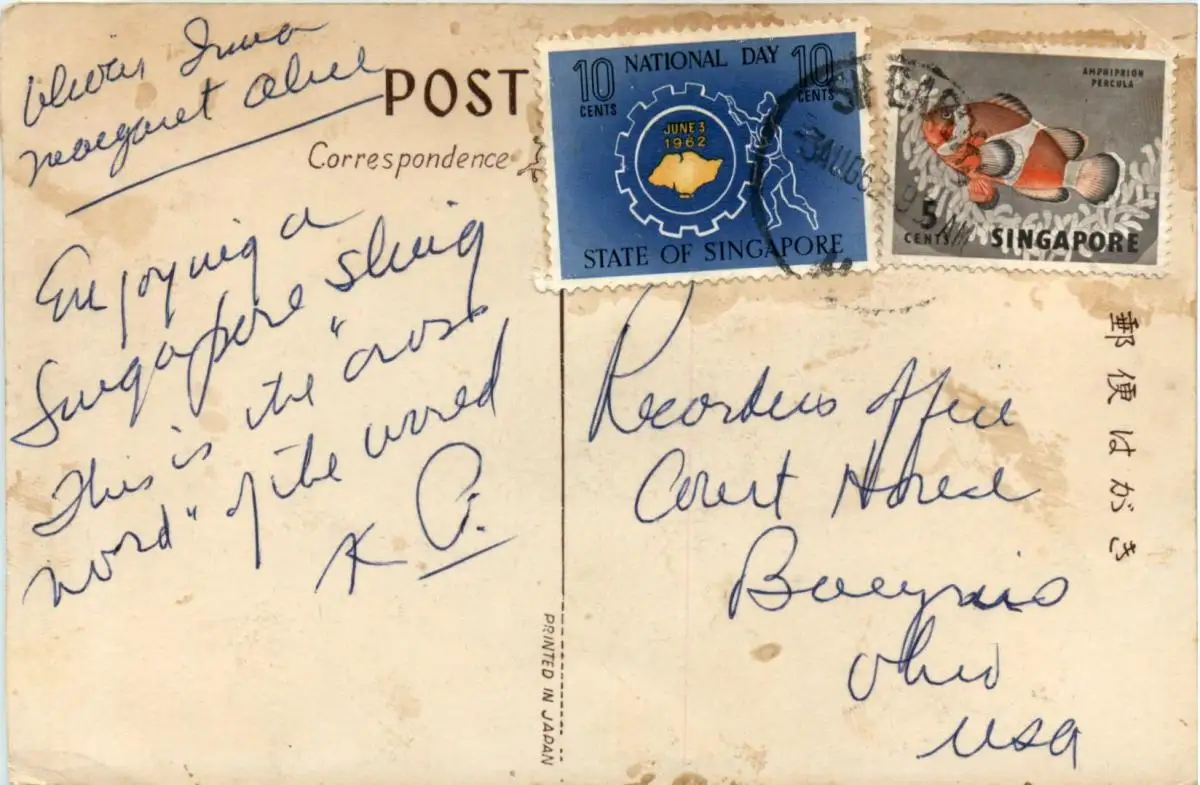 Vivian Irma
Margaret Alice
POST
Correspondence
Enjoying a
Singapore Sling
This is the "cross
word" of the world
K P.
10 NATIONAL DAY 10
CENTS CENTS
JUNE 3
1962
STATE OF SINGAPORE
AMPHIPRION
PERCULA
5
CENTS SINGAPORE
3 AUG 62
9 AM
Recorders Office
Court House
Bucyrus
Ohio
USA
郵便はがき
PRINTED IN JAPAN